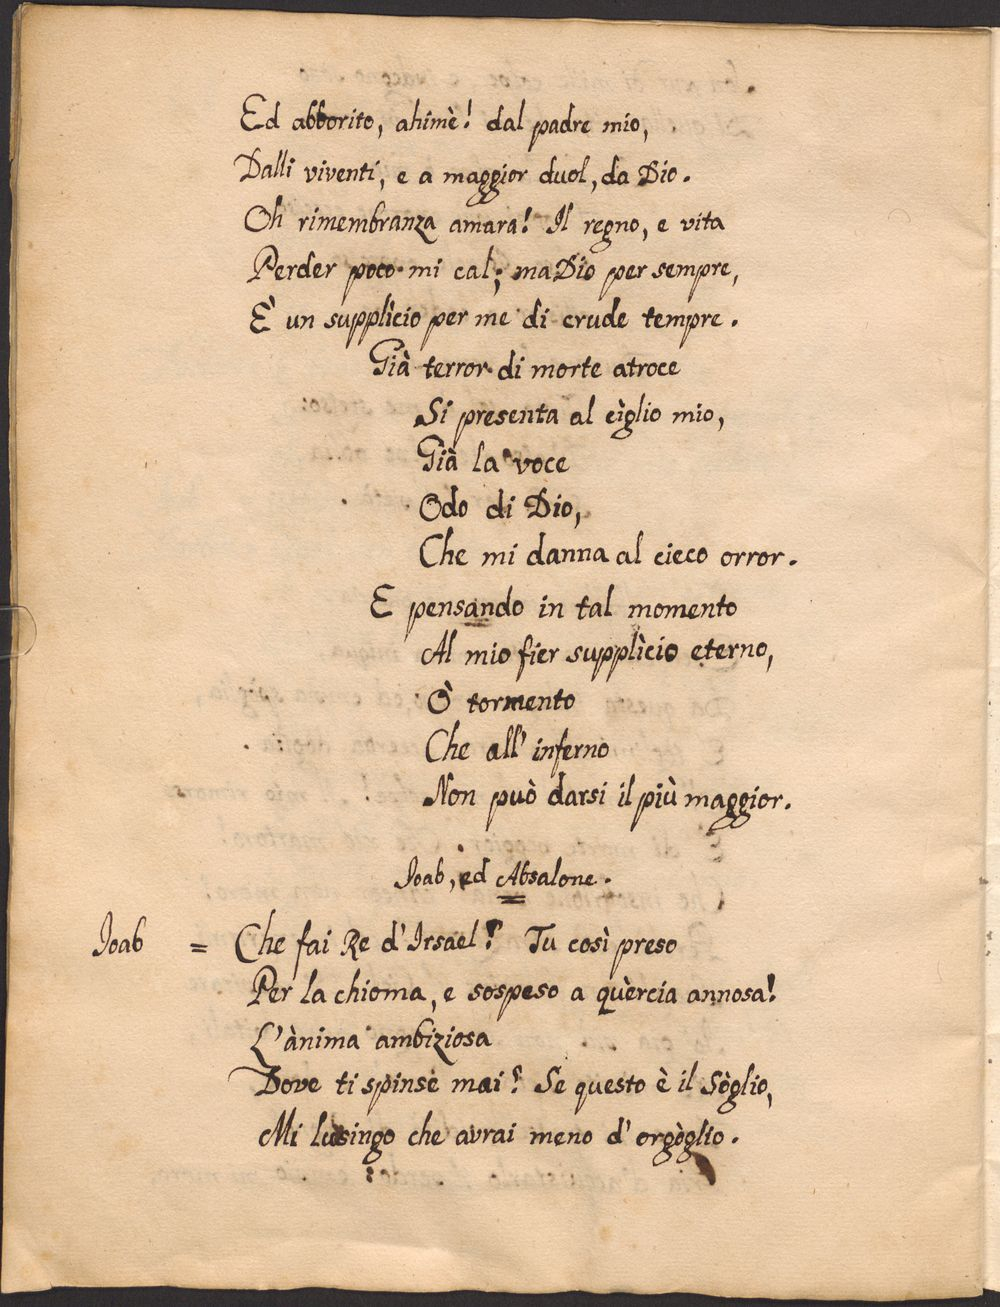 Ed abborito, ahimè! dal padre mio,
Dalli viventi, e a maggior duol, da Dio.
Oh rimembranza amara! Il regno, e vita
Perder poco mi cal; ma Dio per sempre,
È un supplìcio per me di crude tempre.
Già terror di morte atroce
Si presenta al cìglio mio,
Già la voce
Odo di Dio,
Che mi danna al cieco orror.
E pensando in tal momento
Al mio fier supplìcio eterno,
Ò tormento
Che all' inferno
Non può darsi il più maggior.
Joab, ed Absalone.
Joab = Che fai Re d'Irsael? Tu così preso
Per la chioma, e sospeso a quèrcia annosa!
L'ànima ambiziosa
Dove ti spinse mai? Se questo è il Sòglio,
Mi lusingo che avrai meno d'orgòglio.